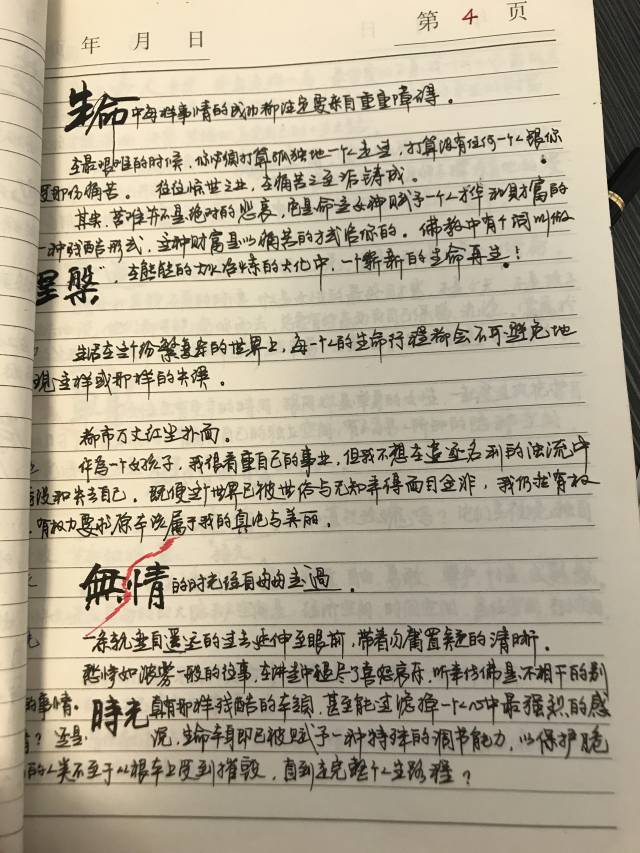 年 月 日
第 4 页
生命中每样事情的成功都注定要来自重重障碍。
在最艰难的时候，你必须打算孤独地一个人走过，打算没有任何一个人跟你
即伤痛苦。 往往惊世之业，在痛苦之至后铸成。
其实，苦难并不是绝对的悲哀，它是命运女神赋予一个人才华和财富的
一种残酷形式，这种财富是以痛苦的方式给你的。佛教中有个词叫做
涅槃”，在熊熊的烈火冶炼的大化中，一个崭新的生命再生！
生活在这个纷繁复杂的世界上，每一个人的生命行程都会不可避免地
现这样或那样的失误。
都市万丈红尘扑面。
作为一个女孩子，我很看重自己的事业，但我不想在追逐名利的浊流中
没和失去自己。既使这个世界已被世俗与无知弄得面目全非，我仍然有权
有权力要求原本该属于我的真理与美丽。
無情的时光径自匆匆走過。
一条轨迹自遥远的过去延伸至眼前，带着勿庸置疑的清晰。
愁情如浓雾一般的往事，在讲述中褪尽了喜怒哀乐，听来仿佛是不相干的别
的事情。時光真有那样残酷的车轮，甚至能过滤掉一个人心中最强烈的感
？还是 说，生命本身即已被赋予一种特殊的调节能力，以保护脆
的人类不至于从根本上受到摧毁，直到走完整个人生路程？